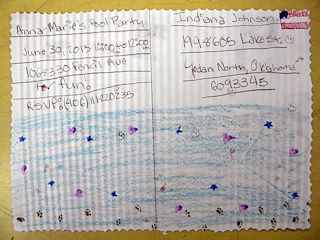 Anna-Marie's Pool Party
June 30, 2015 10:00 to 12:00
106 #330 Pencil Ave
for fun!
RSVP (406)
Indiana Johnson
998605 Lake st.
North, Oklahoma
6093345